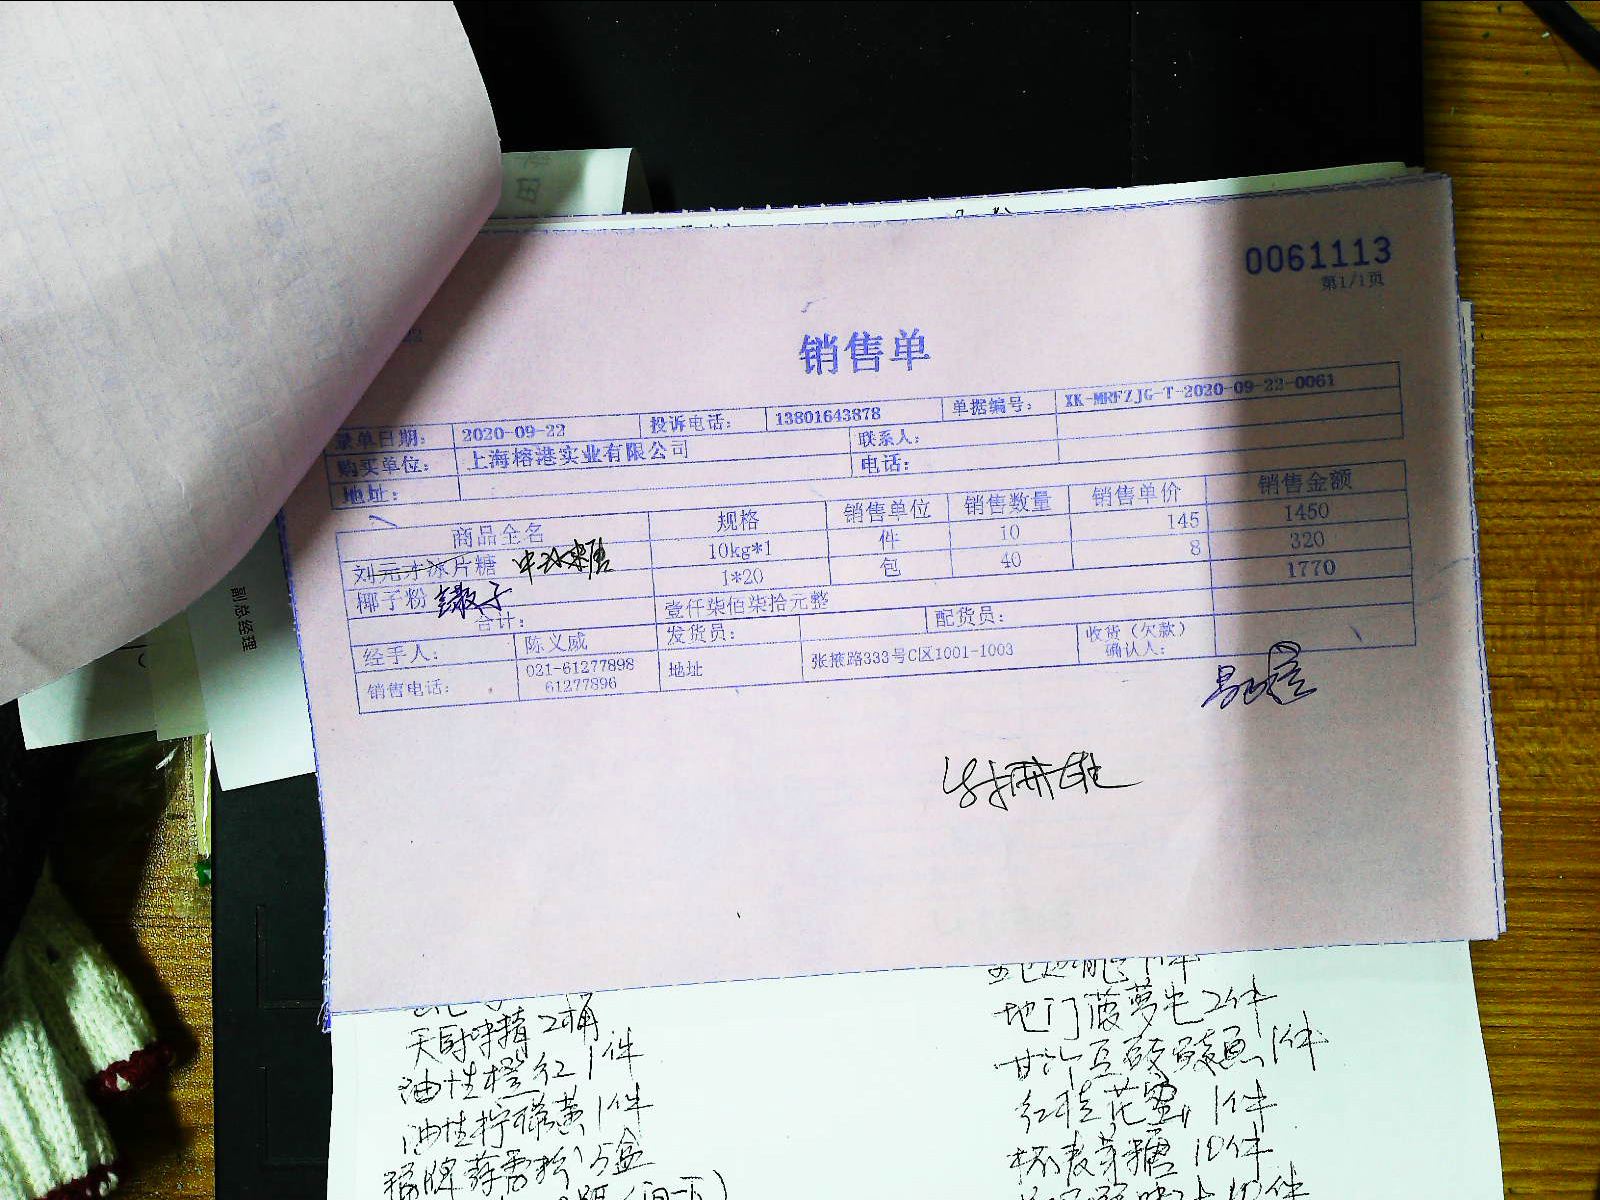 0061113
第1/1页
销售单
录单日期： 2020-09-22 投诉电话： 13801643878 单据编号： XK-MRFZJG-T-2020-09-22-0061
购买单位： 上海榕港实业有限公司 联系人：
地址： 电话：
商品全名 规格 销售单位 销售数量 销售单价 销售金额
刘元才冰片糖 10kg*1 件 10 145 1450
椰子粉 1*20 包 40 8 320
合计： 壹仟柒佰柒拾元整 1770
经手人： 陈义威 发货员： 配货员： 收货（欠款）确认人：
销售电话： 021-61277898 61277896 地址 张掖路333号C区1001-1003
副总经理
天厨味精2桶
油性橙红1件
油性柠檬黄1件
地门菠萝 2件
甘竹豆豉鲮鱼1件
红桂花 1件
麦芽糖10件